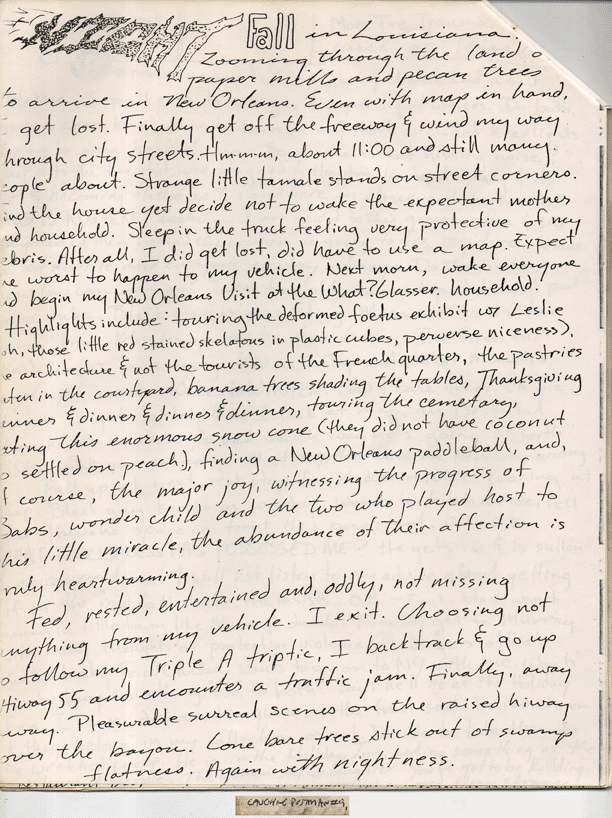 NIGHT Fall in Louisiana.
Zooming through the land o
paper mills and pecan trees
to arrive in New Orleans. Even with map in hand,
get lost. Finally get off the freeway & wind my way
hrough city streets. Hm-m-m, about 11:00 and still many
eople about. Strange little tamale stands on street corners.
ind the house yet decide not to wake the expectant mother
nd household. Sleep in the truck feeling very protective of my
ebris. After all, I did get lost, did have to use a map. Expect
he worst to happen to my vehicle. Next morn, wake everyone
nd begin my New Orleans Visit at the What? Glasser. household.
Highlights include: touring the deformed foetus exhibit w/ Leslie
oh, those little red stained skelatons in plastic cubes, perverse niceness),
e architecture & not the tourists of the French quarter, the pastries
aten in the courtyard, banana trees shading the tables, Thanksgiving
inner & dinner & dinner & dinner, touring the cemetary,
ating this enormous snow cone (they did not have coconut
o settled on peach), finding a New Orleans paddleball, and,
f course, the major joy, witnessing the progress of
Babs, wonder child and the two who played host to
his little miracle, the abundance of their affection is
ruly heartwarming.
Fed, rested, entertained and, oddly, not missing
anything from my vehicle. I exit. Choosing not
o follow my Triple A triptic, I backtrack & go up
Hiway 55 and encounter a traffic jam. Finally, away
way. Pleasurable surreal scenes on the raised hiway
over the bayou. Lone bare trees stick out of swamp
flatness. Again with nightness.